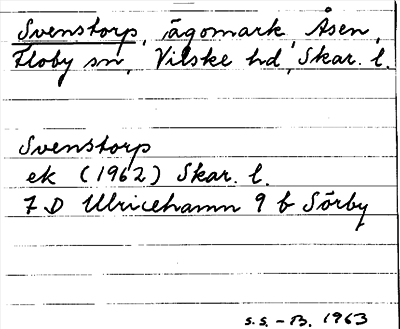 Svenstorp, ägomark, Åsen,
Floby sn, Vilske hd, Skar. l.
Svenstorp
ek (1962) Skar. l.
7 D Ulricehamn 9 b Sörby
S.S. - B. 1963